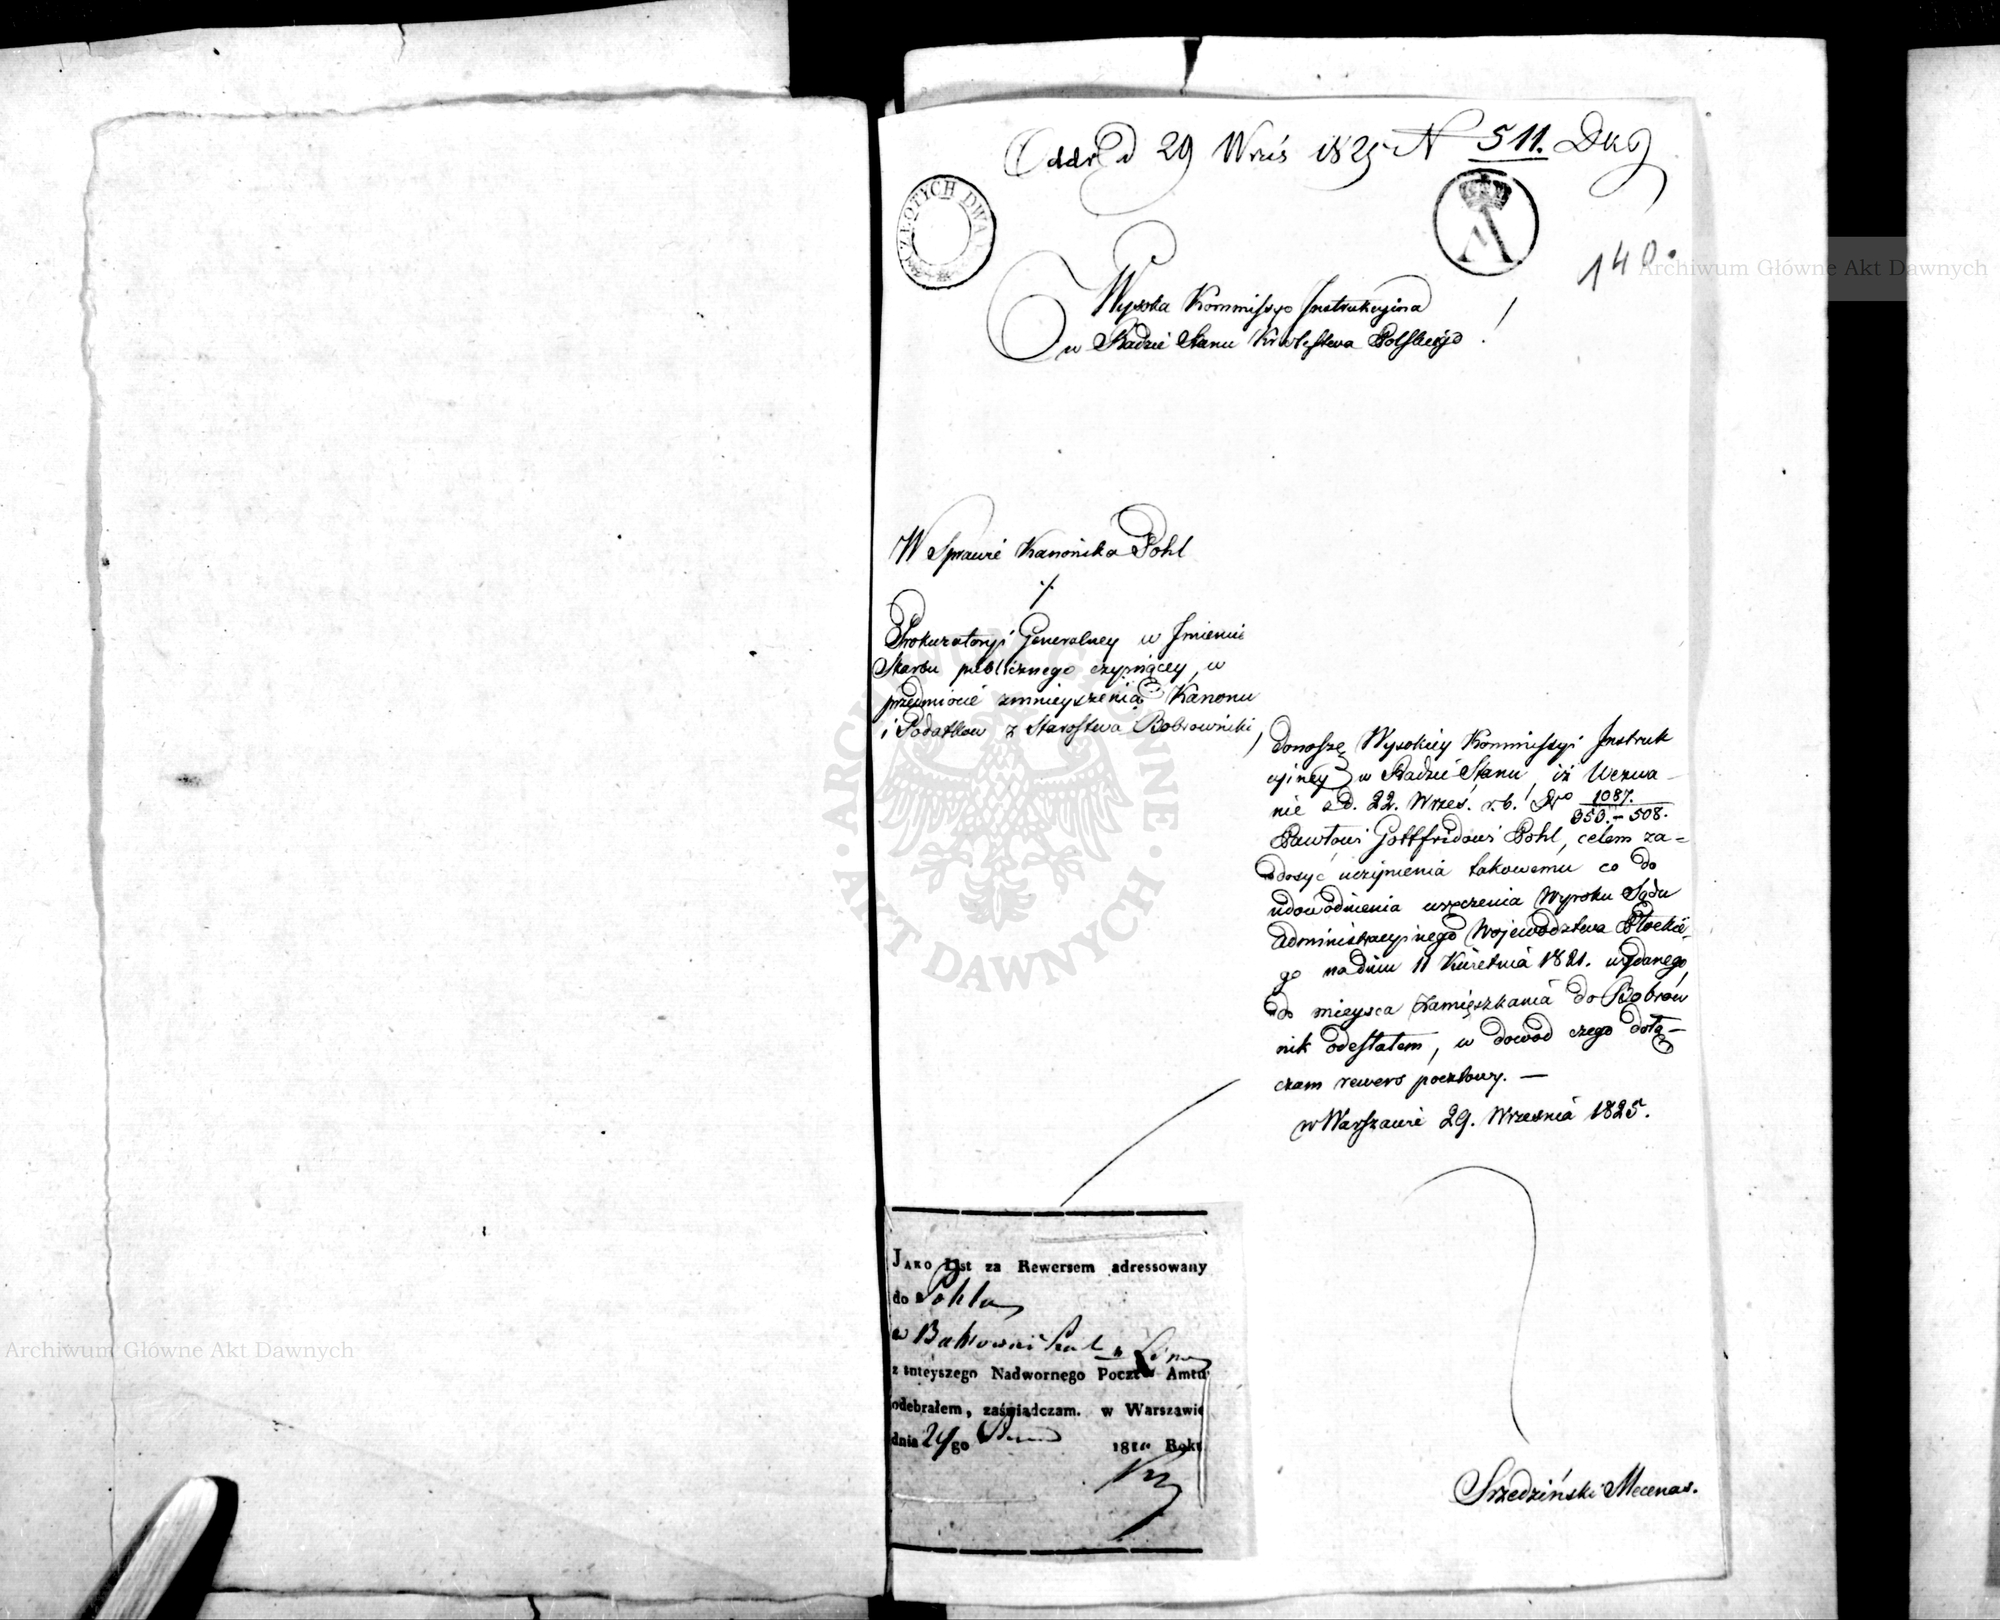 Oddr. d 29 Wrześ 1825 N 511. DKJ
ZŁOTYCH DWA
140.
Wysoka Kommissyo Instrukcyina
w Radzie Stanu Królestwa Polskiego!
W Sprawie Kanonika Pohl
./.
Prokuratoryi Generalney w Imieniu
Skarbu publicznego czyniącey, w
przedmiocie zmnieyszenia Kanonu
i Podatków z Starostwa Bobrowniki,
donoszę Wysokiey Kommissyi Instruk
cyiney w Radzie Stanu iż Wezwa-
nie z d. 22. Wrześ. r. b. Nro 1087.
353. – 508.
Pawłowi Gottfridowi Pohl, celem za-
dosyć uczynienia takowemu co do
udowodnienia wręczenia Wyroku Sądu
Administracyinego Województwa Płockie-
go na dniu 11 Kwietnia 1821. wydanego,
do mieysca Zamieszkania do Bobrow
nik odesłałem, w dowód czego dołą-
czam rewers pocztowy. —
w Warszawie 29. Września 1825.
Jako List za Rewersem adressowany
do Pohla
w
z tuteyszego Nadwornego Poczt Amtu
odebrałem, zaświadczam. w Warszawie
dnia 24 go 182 Roku
Srzedziński Mecenas.
Archiwum Główne Akt Dawnych
Archiwum Główne Akt Dawnych
ARCHIWUM GŁÓWNE · AKT DAWNYCH ·